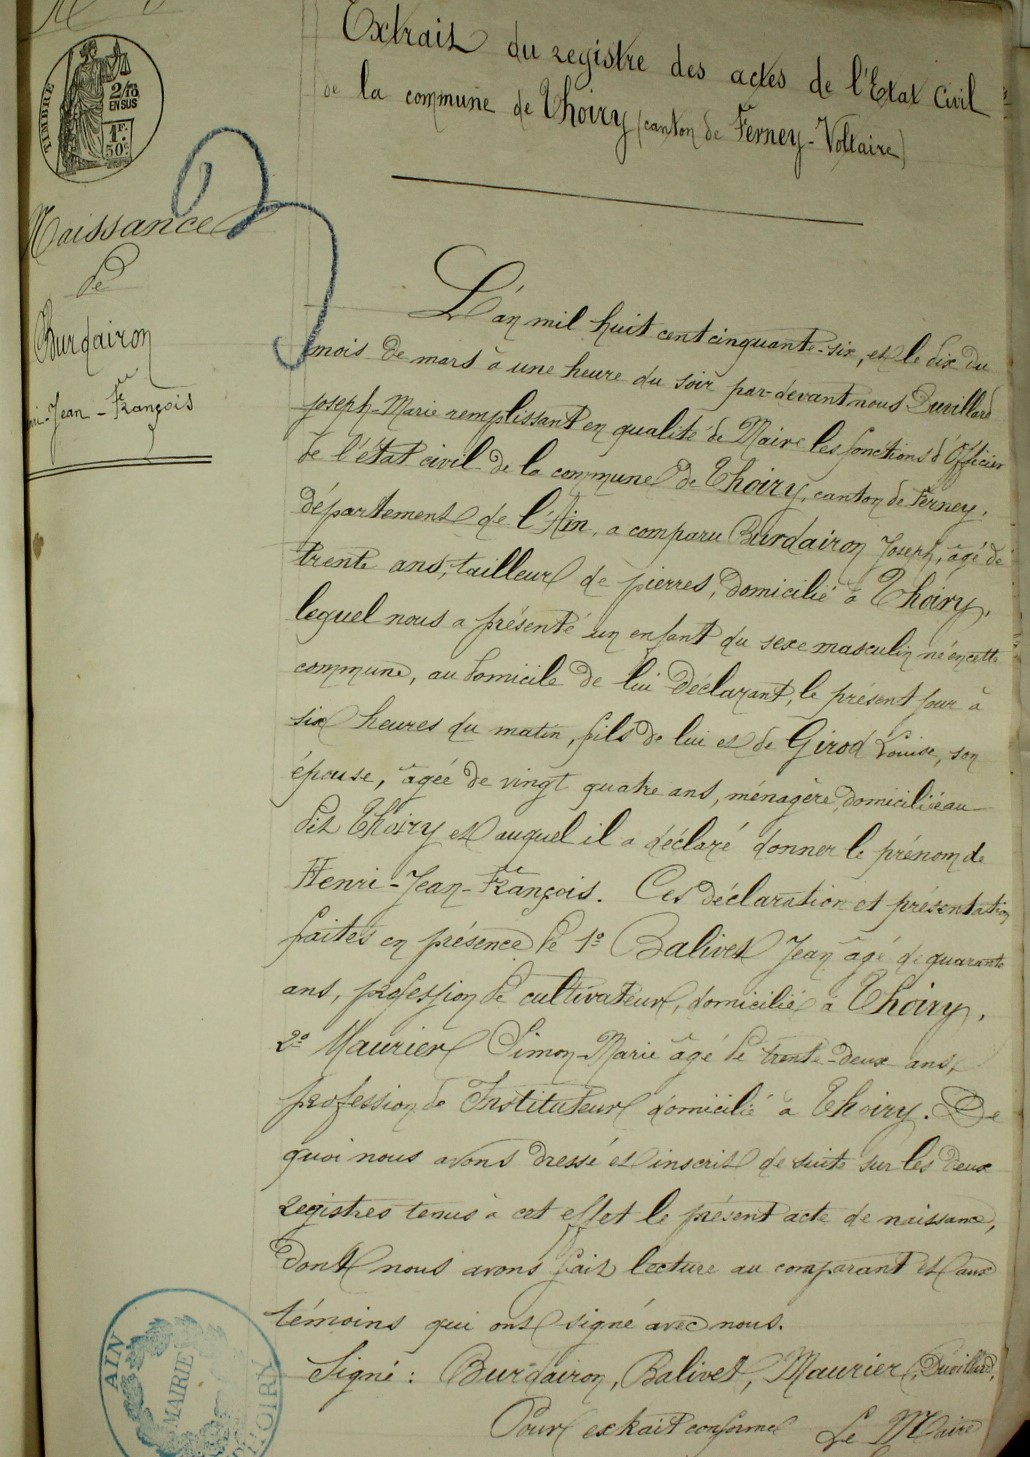 Extrait du registre des actes de l'Etat Civil
de la commune de Thoiry (canton de Ferney-Voltaire)
TIMBRE
2/10
EN SUS
1F.
50c.
Naissance
de
Burdairon
Henri-Jean-François
L'an mil huit cent cinquante-six, et le dix du
mois de mars à une heure du soir par-devant nous Duvillard
Joseph-Marie remplissant en qualité de Maire les fonctions d'Officier
de l'état civil de la commune de Thoiry, canton de Ferney,
département de l'Ain, a comparu Burdairon Joseph, âgé de
trente ans, tailleur de pierres, domicilié à Thoiry,
lequel nous a présenté un enfant du sexe masculin né en cette
commune, au domicile de lui déclarant, le présent jour à
six heures du matin, fils de lui et de Girod Louise, son
épouse, âgée de vingt quatre ans, ménagère, domiciliée au
dit Thoiry et auquel il a déclaré donner le prénom de
Henri-Jean-François. Ces déclaration et présentation
faites en présence de 1º Balivet Jean âgé de quarante
ans, profession de cultivateur, domicilié à Thoiry,
2º Maurier Simon-Marie âgé de trente-deux ans,
profession de Instituteur domicilié à Thoiry. De
quoi nous avons dressé et inscrit de suite sur les deux
registres tenus à cet effet le présent acte de naissance,
dont nous avons fait lecture au comparant et aux
témoins qui ont signé avec nous.
Signé : Burdairon, Balivet, Maurier, Duvillard,
Pour extrait conforme Le Maire
AIN
MAIRIE
THOIRY